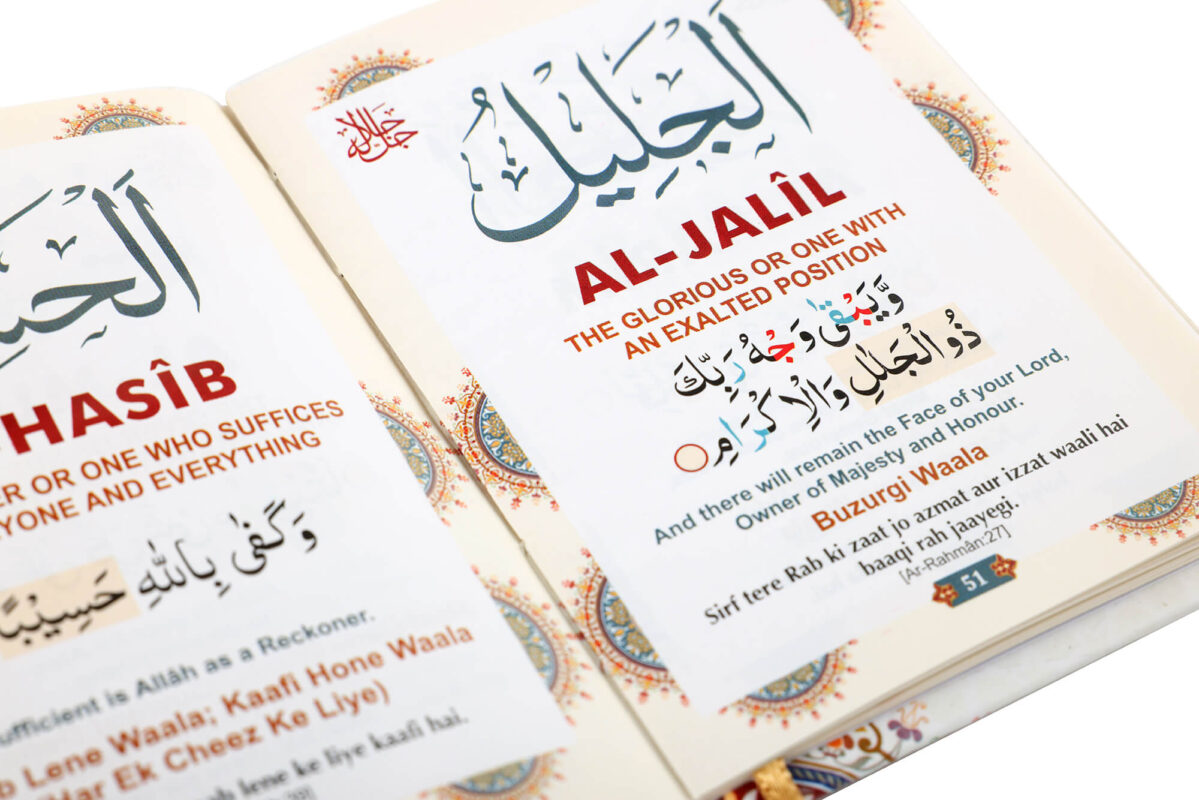 الْحَسِيْبُ
HASÎB
ER OR ONE WHO SUFFICES
YONE AND EVERYTHING
وَكَفٰى بِاللّٰهِ حَسِيْبًا
ufficient is Allâh as a Reckoner.
Lene Waala; Kaafi Hone Waala
Har Ek Cheez Ke Liye)
lene ke liye kaafi hai.
اَلْجَلِيْلُ
جل جلاله
AL-JALÎL
THE GLORIOUS OR ONE WITH
AN EXALTED POSITION
وَّيَبْقٰى وَجْهُ رَبِّكَ
ذُو الْجَلٰلِ وَالْاِكْرَامِ
And there will remain the Face of your Lord,
Owner of Majesty and Honour.
Buzurgi Waala
Sirf tere Rab ki zaat jo azmat aur izzat waali hai
baaqi rah jaayegi.
[Ar-Rahmân:27]
51